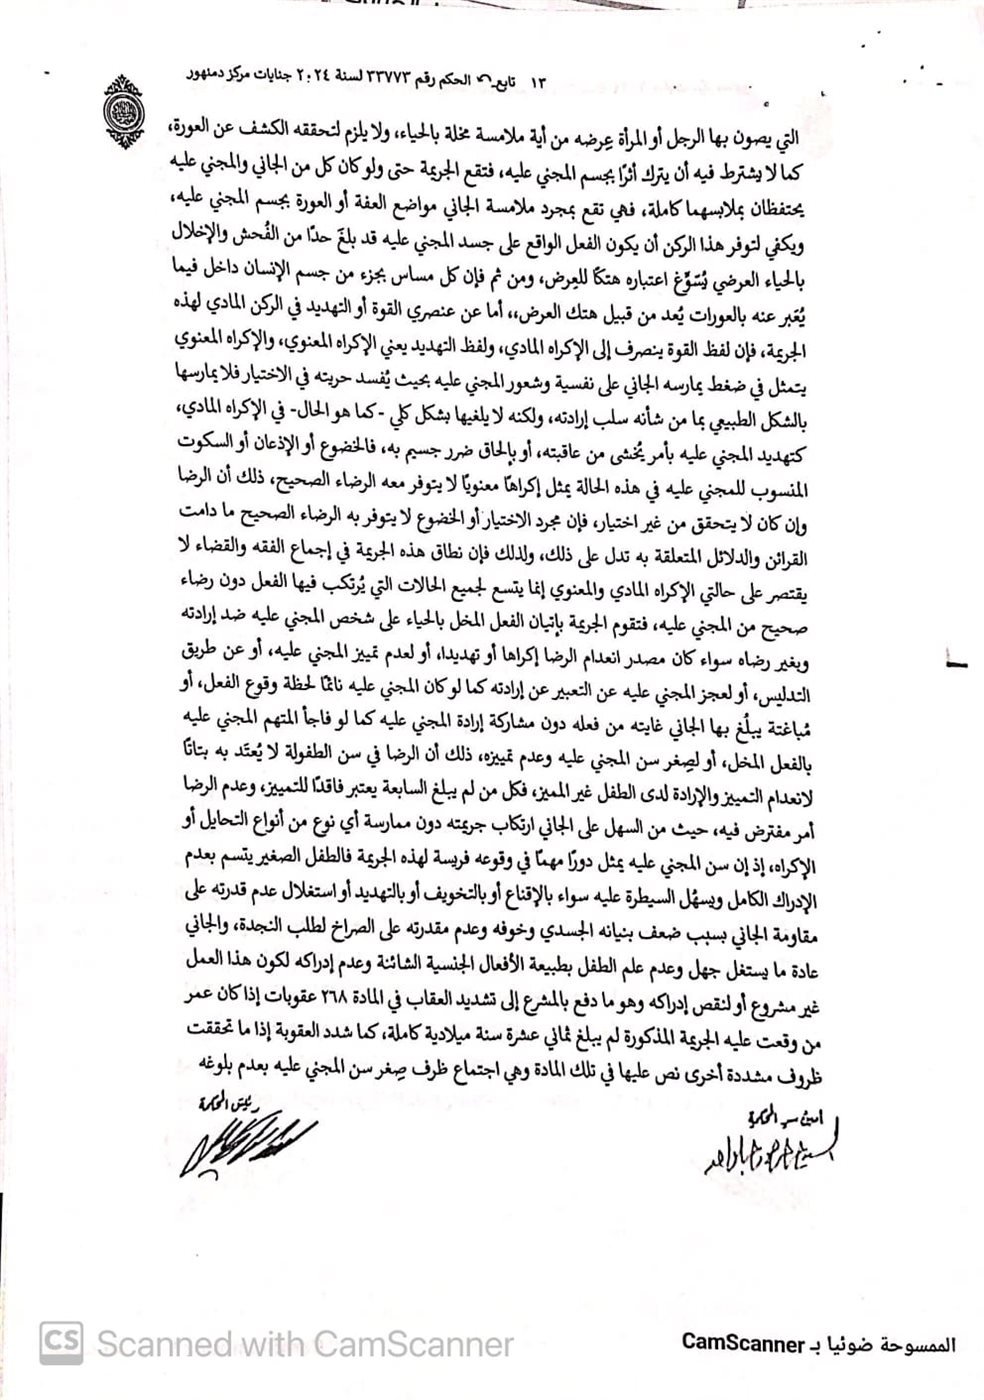 ١٣ تابع الحكم رقم ٣٣٧٧٣ لسنة ٢٠٢٤ جنايات مركز دمنهور
التي يصون بها الرجل أو المرأة عِرضه من أية ملامسة مخلة بالحياء، ولا يلزم لتحققه الكشف عن العورة،
كما لا يشترط فيه أن يترك أثرًا بجسم المجني عليه، فتقع الجريمة حتى ولو كان كل من الجاني والمجني عليه
يحتفظان بملابسهما كاملة، فهي تقع بمجرد ملامسة الجاني مواضع العفة أو العورة بجسم المجني عليه،
ويكفي لتوفر هذا الركن أن يكون الفعل الواقع على جسد المجني عليه قد بلغَ حدًا من الفُحش والإخلال
بالحياء العرضي يُسَوِّغ اعتباره هتكًا للعِرض، ومن ثم فإن كل مساس بجزء من جسم الإنسان داخل فيما
يُعَبر عنه بالعورات يُعد من قبيل هتك العرض،، أما عن عنصري القوة أو التهديد في الركن المادي لهذه
الجريمة، فإن لفظ القوة ينصرف إلى الإكراه المادي، ولفظ التهديد يعني الإكراه المعنوي، والإكراه المعنوي
يتمثل في ضغط يمارسه الجاني على نفسية وشعور المجني عليه بحيث يُفسد حريته في الاختيار فلا يمارسها
بالشكل الطبيعي بما من شأنه سلب إرادته، ولكنه لا يلغيها بشكل كلي -كما هو الحال- في الإكراه المادي،
كتهديد المجني عليه بأمر يُخشى من عاقبته، أو بإلحاق ضرر جسيم به، فالخضوع أو الإذعان أو السكوت
المنسوب للمجني عليه في هذه الحالة يمثل إكراهًا معنويًا لا يتوفر معه الرضاء الصحيح، ذلك أن الرضا
وإن كان لا يتحقق من غير اختيار، فإن مجرد الاختيار أو الخضوع لا يتوفر به الرضاء الصحيح ما دامت
القرائن والدلائل المتعلقة به تدل على ذلك، ولذلك فإن نطاق هذه الجريمة في إجماع الفقه والقضاء لا
يقتصر على حالتي الإكراه المادي والمعنوي إنما يتسع لجميع الحالات التي يُرتكب فيها الفعل دون رضاء
صحيح من المجني عليه، فتقوم الجريمة بإتيان الفعل المخل بالحياء على شخص المجني عليه ضد إرادته
وبغير رضاه سواء كان مصدر انعدام الرضا إكراها أو تهديدا، أو لعدم تمييز المجني عليه، أو عن طريق
التدليس، أو لعجز المجني عليه عن التعبير عن إرادته كما لو كان المجني عليه نائمًا لحظة وقوع الفعل، أو
مُباغتة يبلُغ بها الجاني غايته من فعله دون مشاركة إرادة المجني عليه كما لو فاجأ المتهم المجني عليه
بالفعل المخل، أو لصِغر سن المجني عليه وعدم تمييزه، ذلك أن الرضا في سن الطفولة لا يُعتَد به بتاتًا
لانعدام التمييز والإرادة لدى الطفل غير المميز، فكل من لم يبلغ السابعة يعتبر فاقدًا للتمييز، وعدم الرضا
أمر مفترض فيه، حيث من السهل على الجاني ارتكاب جريمته دون ممارسة أي نوع من أنواع التحايل أو
الإكراه، إذ إن سن المجني عليه يمثل دورًا مهمًا في وقوعه فريسة لهذه الجريمة فالطفل الصغير يتسم بعدم
الإدراك الكامل ويسهُل السيطرة عليه سواء بالإقناع أو بالتخويف أو بالتهديد أو استغلال عدم قدرته على
مقاومة الجاني بسبب ضعف بنيانه الجسدي وخوفه وعدم مقدرته على الصراخ لطلب النجدة، والجاني
عادة ما يستغل جهل وعدم علم الطفل بطبيعة الأفعال الجنسية الشائنة وعدم إدراكه لكون هذا العمل
غير مشروع أو لنقص إدراكه وهو ما دفع بالمشرع إلى تشديد العقاب في المادة ٢٦٨ عقوبات إذا كان عمر
من وقعت عليه الجريمة المذكورة لم يبلغ ثماني عشرة سنة ميلادية كاملة، كما شدد العقوبة إذا ما تحققت
ظروف مشددة أخرى نص عليها في تلك المادة وهي اجتماع ظرف صِغر سن المجني عليه بعدم بلوغه
أمين سر المحكمة
رئيس المحكمة
CS Scanned with CamScanner
الممسوحة ضوئيا بـ CamScanner